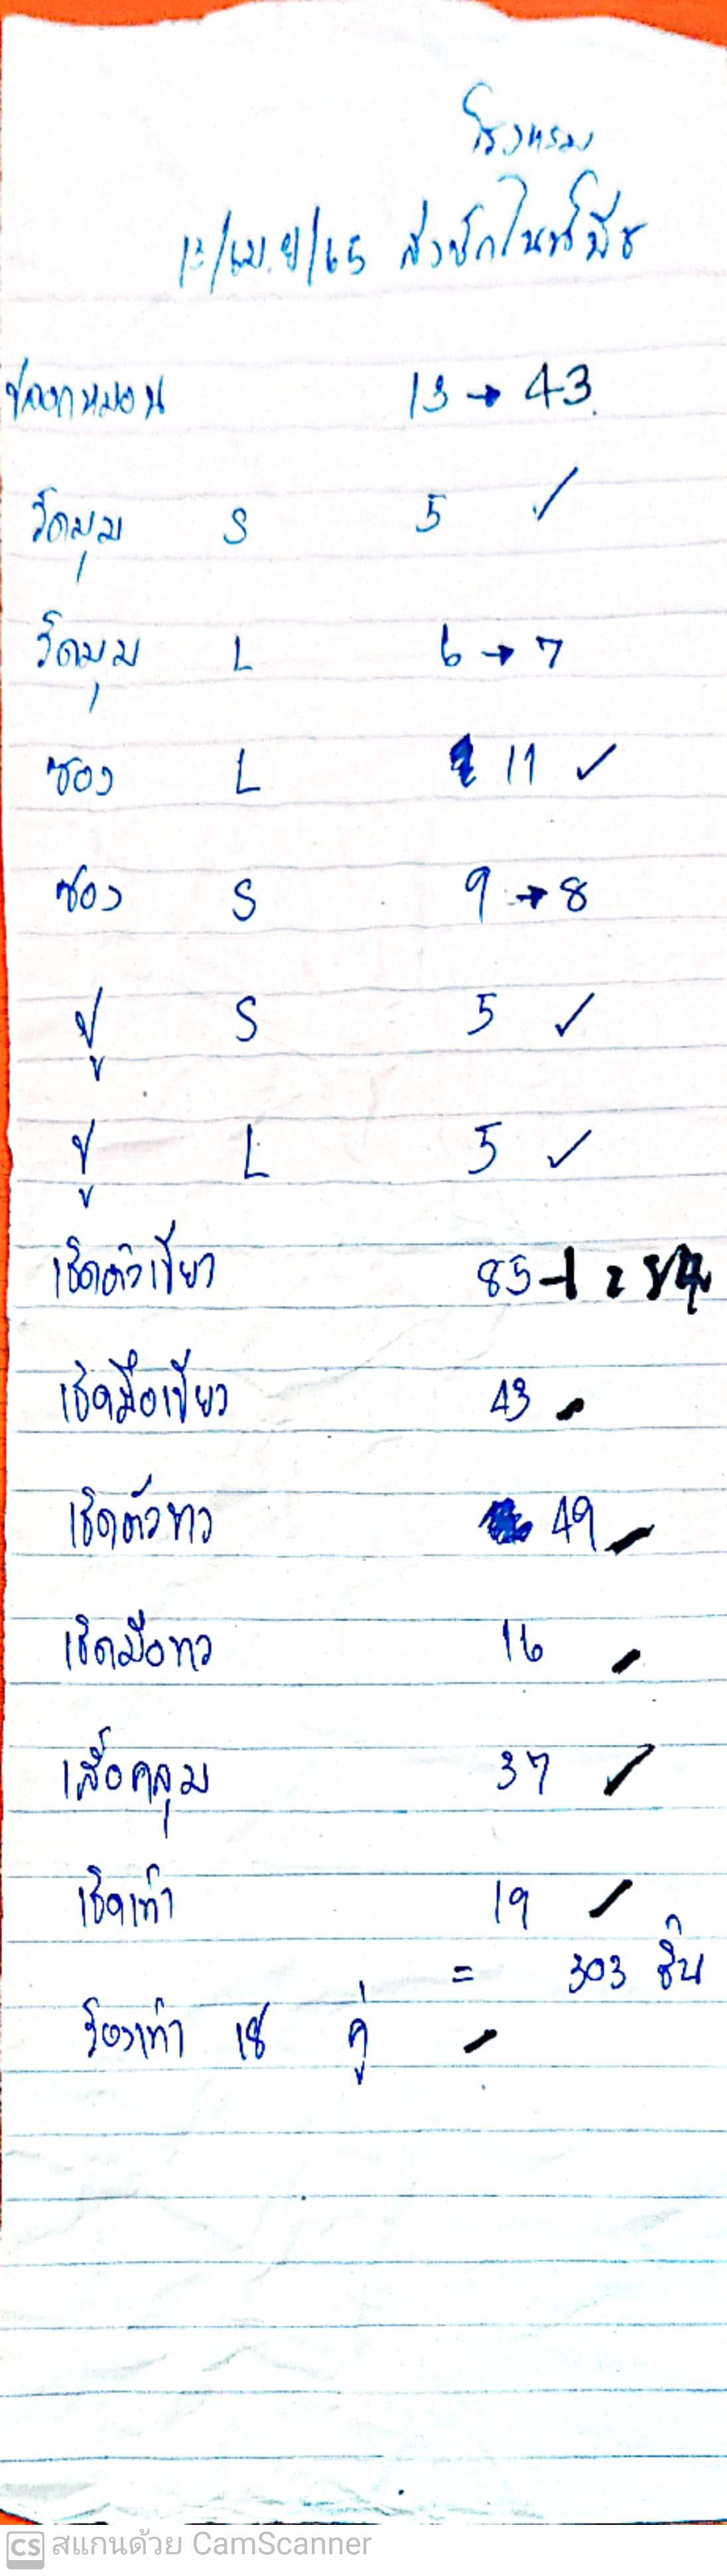 โรงแรม
13/เม.ย/65 ส่งซัก
ปลอกหมอน 13 → 43
รัดมุม S 5 ✓
รัดมุม L 6 → 7
ซอง L 11 ✓
ซอง S 9 → 8
ปู S 5 ✓
ปู L 5 ✓
เช็ดตัวเขียว 85 -1 = 84
เช็ดมือเขียว 43
เช็ดตัวขาว 49
เช็ดมือขาว 16
เสื้อคลุม 37
เช็ดเท้า 19
= 303 ชิ้น
รองเท้า 18 คู่
CS สแกนด้วย CamScanner